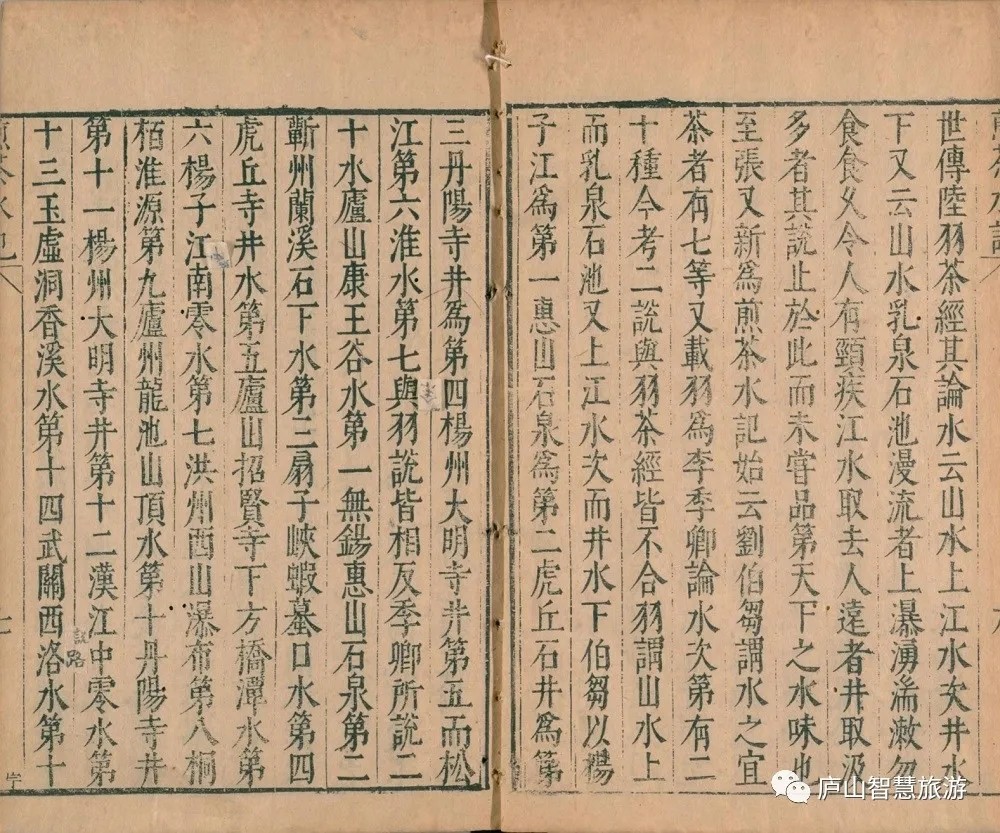 世傳陸羽茶經其論水云山水上江水次井水
下又云山水乳泉石池漫流者上瀑湧湍漱勿
食食久令人有頸疾江水取去人遠者井取汲
多者其說止於此而未嘗品第天下之水味也
至張又新爲煎茶水記始云劉伯芻謂水之宜
茶者有七等又載羽爲李季卿論水次第有二
十種今考二說與羽茶經皆不合羽謂山水上
而乳泉石池又上江水次而井水下伯芻以楊
子江爲第一惠山石泉爲第二虎丘石井爲第
三丹陽寺井爲第四楊州大明寺井第五而松
江第六淮水第七與羽說皆相反季卿所說二
十水廬山康王谷水第一無錫惠山石泉第二
蘄州蘭溪石下水第三扇子峽蝦蟇口水第四
虎丘寺井水第五廬山招賢寺下方橋潭水第
六楊子江南零水第七洪州西山瀑布第八桐
栢淮源第九廬州龍池山頂水第十丹陽寺井
第十一楊州大明寺井第十二漢江中零水第
十三玉虛洞香溪水第十四武關西洛水第十
庐山智慧旅游